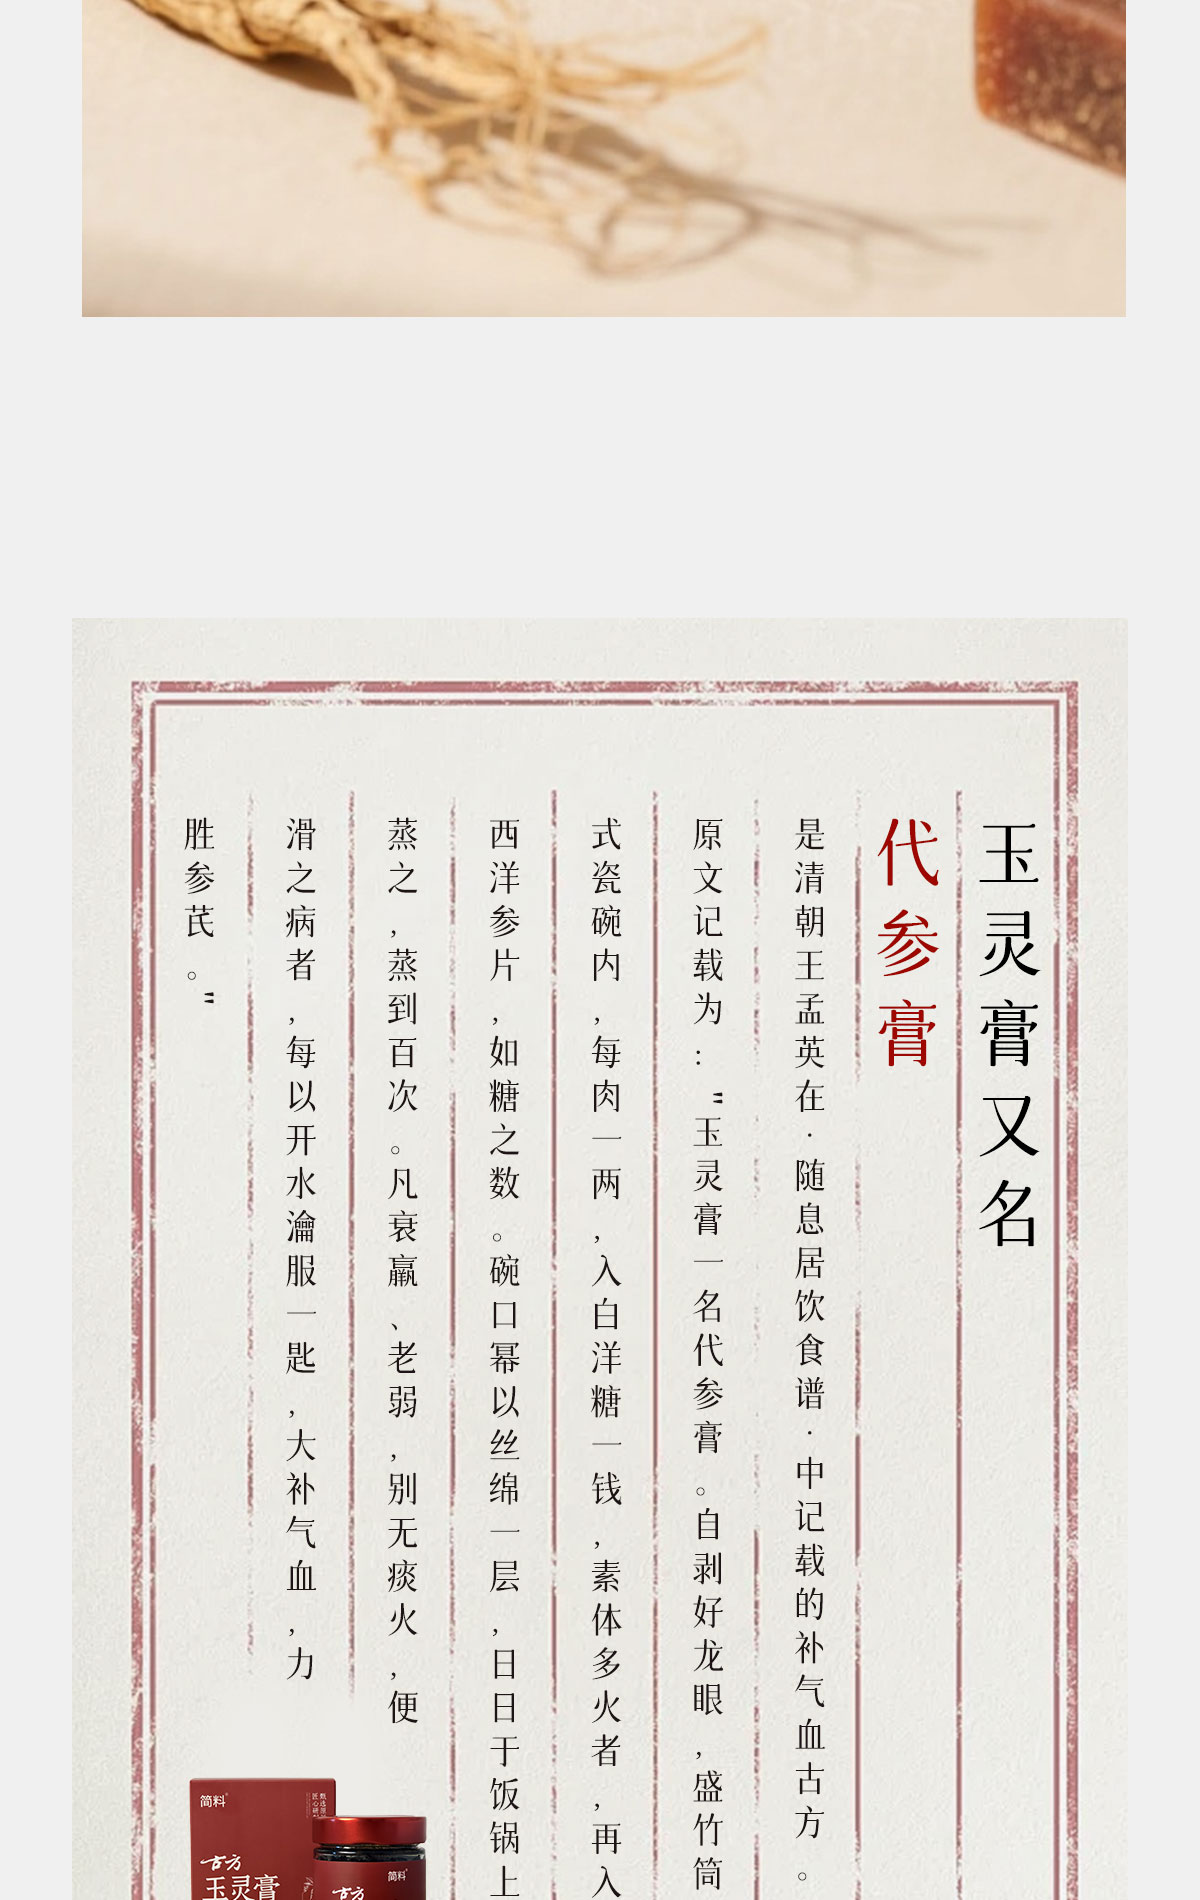 玉灵膏又名
代参膏
是清朝王孟英在·随息居饮食谱·中记载的补气血古方。
原文记载为："玉灵膏一名代参膏。自剥好龙眼，盛竹筒
式瓷碗内，每肉一两，入白洋糖一钱，素体多火者，再入
西洋参片，如糖之数。碗口幂以丝绵一层，日日于饭锅上
蒸之，蒸到百次。凡衰羸、老弱，别无痰火，便
滑之病者，每以开水瀹服一匙，大补气血，力
胜参芪。"
简料
古方
玉灵膏
简料
古方